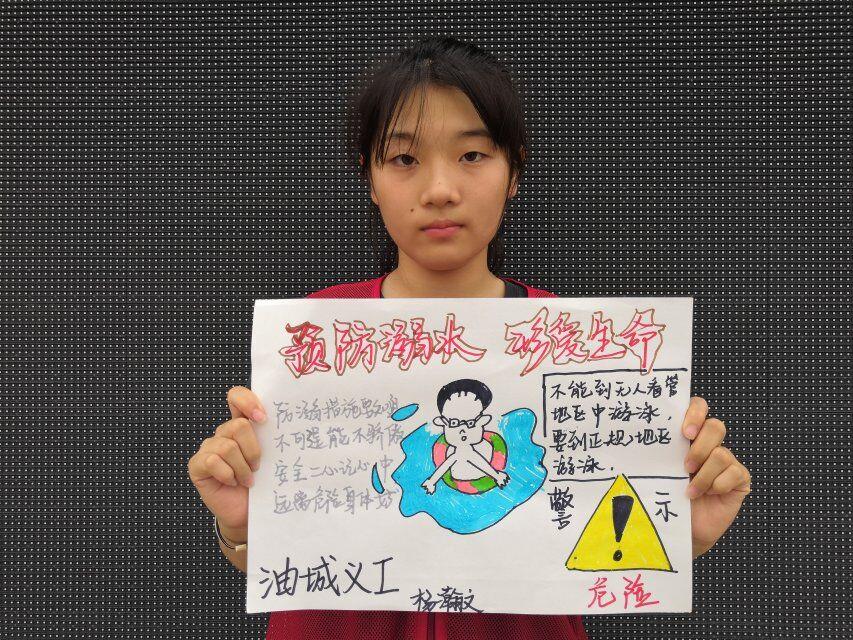 预防溺水 珍爱生命
防溺措施要牢
不可逞能不骄傲
安全二心记心中
远离危险身体好
不能到无人看管
地区中游泳.
要到正规地区
游泳.
警示
危险
油城义工
杨瀚文